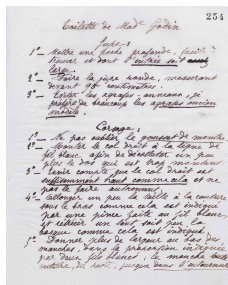 234
Toilette de Madᵉ Godin
Jupe
1° — Mettre une poche profonde, facile à
trouver et dont l'entrée soit
large.
2° — Faire la jupe ronde, mesurant
devant 96 centimètres
3° — Eviter les agrafes — anneaux, je
préfère de beaucoup les agrafes ancien
modèle.
Corsage
1° — Ne pas oublier le gousset de montre.
2° — Monter le col droit à la ligne de
fil blanc afin de décolleter un peu
plus le dos qui est trop montant
3° — Tenir compte que le col droit est
suffisamment haut comme cela et ne
pas le faire autrement.
4° — Allonger un peu la taille à la couture
sous le bras comme cela est indiqué
par une pince faite au fil blanc
et réduire un tant soit peu la
basque comme cela est indiqué.
5° — Donner plus de largeur au bas des
manches, dans la proportion indiquée
par deux fils blancs, la manche
du droit, jusque dans l'entournure